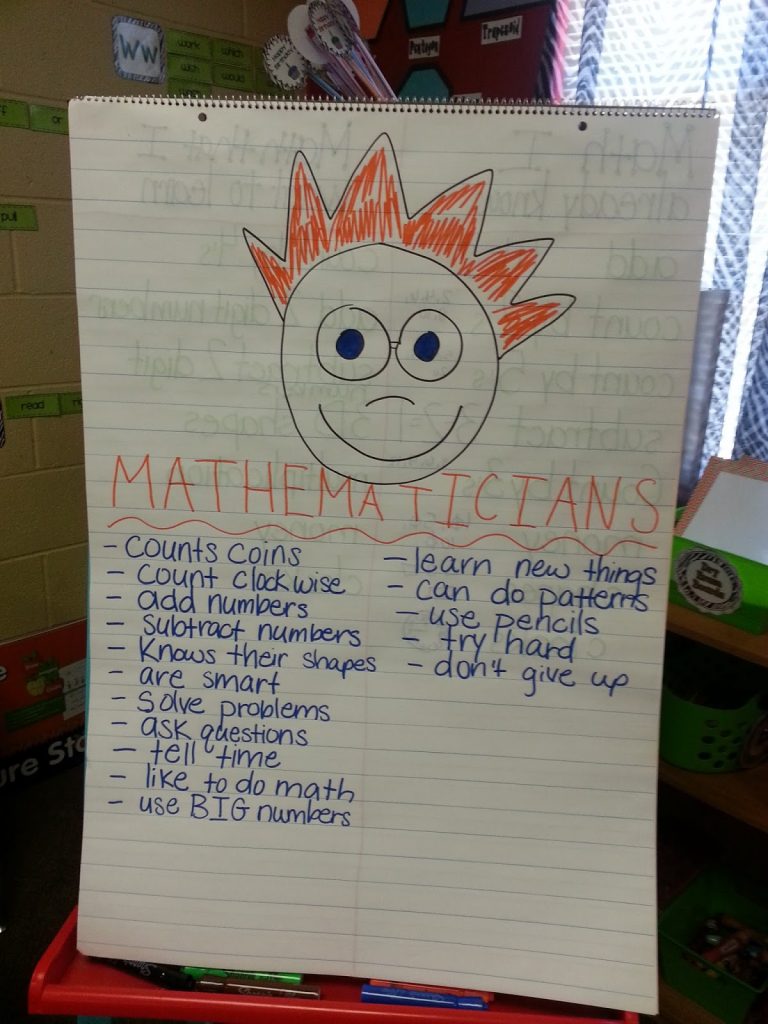 Ww
work
which
with
would
or
pull
read
Trapezoid
MATHEMATICIANS
- Counts coins
- Count clockwise
- add numbers
- Subtract numbers
- Knows their shapes
- are smart
- Solve problems
- ask questions
- tell time
- like to do math
- use BIG numbers
- learn new things
- can do patterns
- use pencils
- try hard
- don't give up